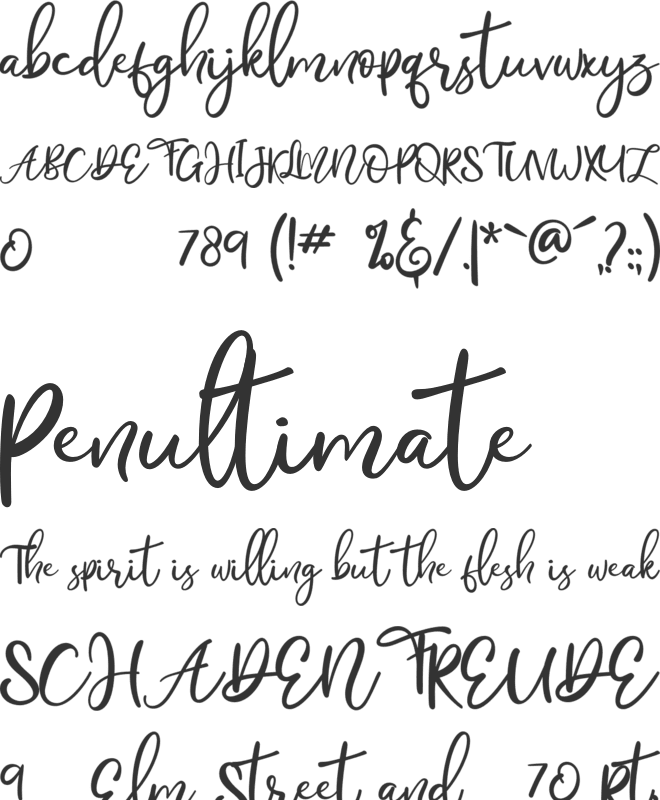 abcdefghijklmnopqrstuvwxyz
ABCDEFGHIJKLMNOPQRSTUVWXYZ
0 789 (!# %&/.|*`@´,?:;)
Penultimate
The spirit is willing but the flesh is weak
SCHADENFREUDE
9 Elm Street and 70 pt.